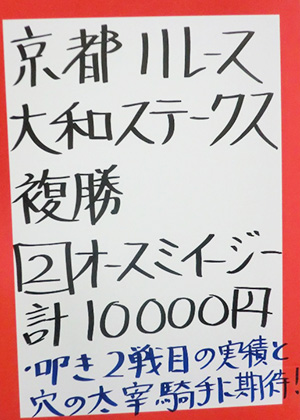 京都11レース
大和ステークス
複勝
2オースミイージー
計10000円
・叩き2戦目の実績と
穴の太宰騎手に期待!